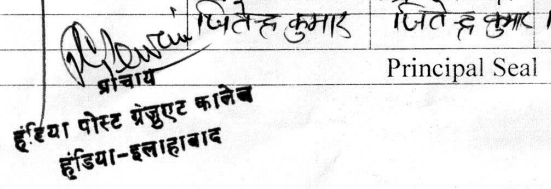 जितेन्द्र कुमार जितेन्द्र कुमार
Principal Seal
प्राचार्य
हंडिया पोस्ट ग्रेजुएट कालेज
हंडिया-इलाहाबाद